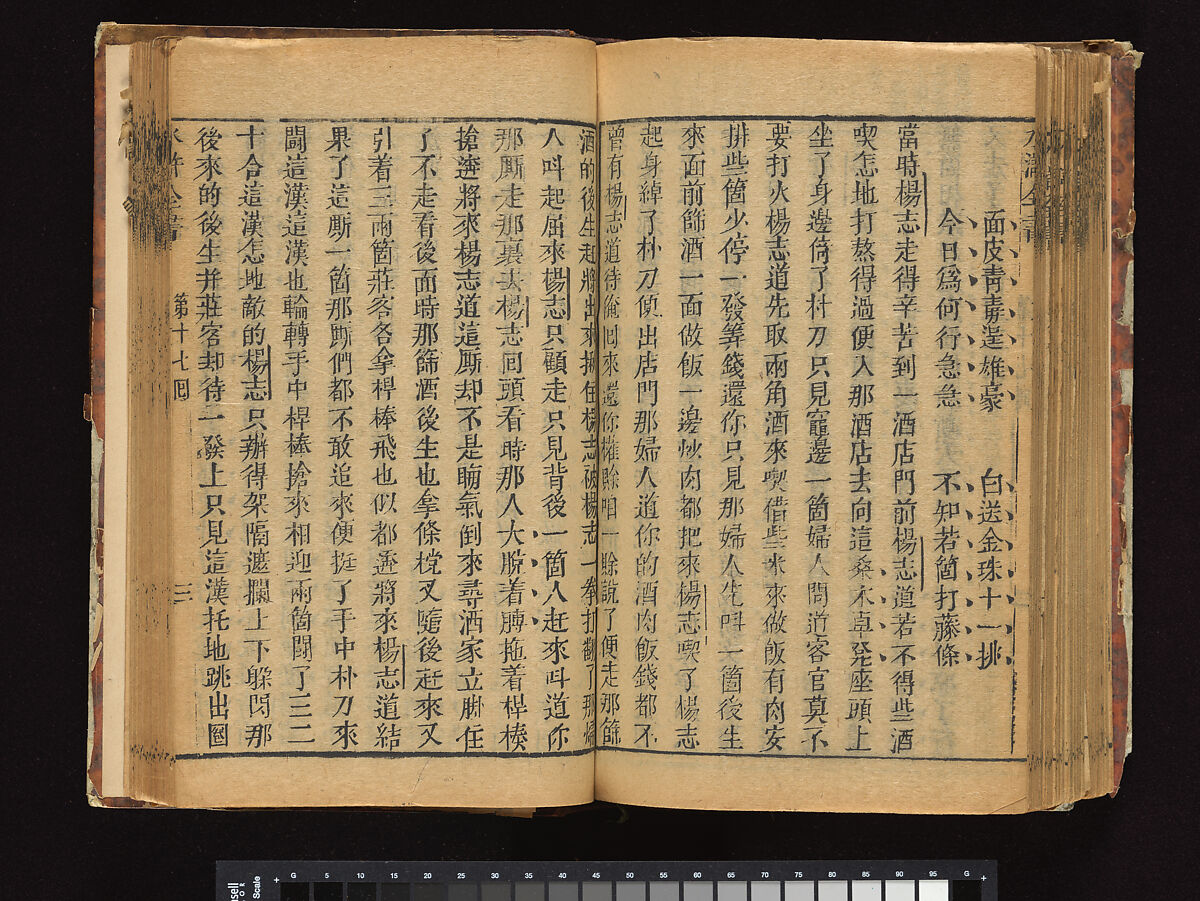 水滸全書
面皮青毒逞雄豪　白送金珠十一挑
今日爲何行急急　不知若箇打藤條
當時楊志走得辛苦到一酒店門前楊志道若不得些酒
喫怎地打熬得過便入那酒店去向這桑木卓凳座頭上
坐了身邊倚了朴刀只見竈邊一箇婦人問道客官莫不
要打火楊志道先取兩角酒來喫借些米來做飯有肉安
排些箇少停一發筭錢還你只見那婦人先呌一箇後生
來面前篩酒一面做飯一邊炒肉都把來楊志喫了楊志
起身綽了朴刀便出店門那婦人道你的酒肉飯錢都不
曾有楊志道待俺回來還你權賒咱一賒說了便走那篩
酒的後生赶將出來揪住楊志被楊志一拳打翻了那婦
人呌起屈來楊志只顧走只見背後一箇人赶來呌道你
那厮走那裏去楊志回頭看時那人大脫着膊拖着桿棒
搶逩將來楊志道這厮却不是晦氣倒來尋洒家立脚住
了不走看後面時那篩酒後生也拿條欓叉隨後赶來又
引着三兩箇莊客各拿桿棒飛也似都逩將來楊志道結
果了這厮一箇那厮們都不敢追來便挺了手中朴刀來
鬬這漢這漢也輪轉手中桿棒搶來相迎兩箇鬬了三二
十合這漢怎地敵的楊志只辦得架隔遮攔上下躱閃那
後來的後生并莊客却待一發上只見這漢托地跳出圈
水滸全書
第十七囘
三
G 5 10 15 20 30 40 45 50 55 60 65 70 75 80 85 90 95 G
Scale